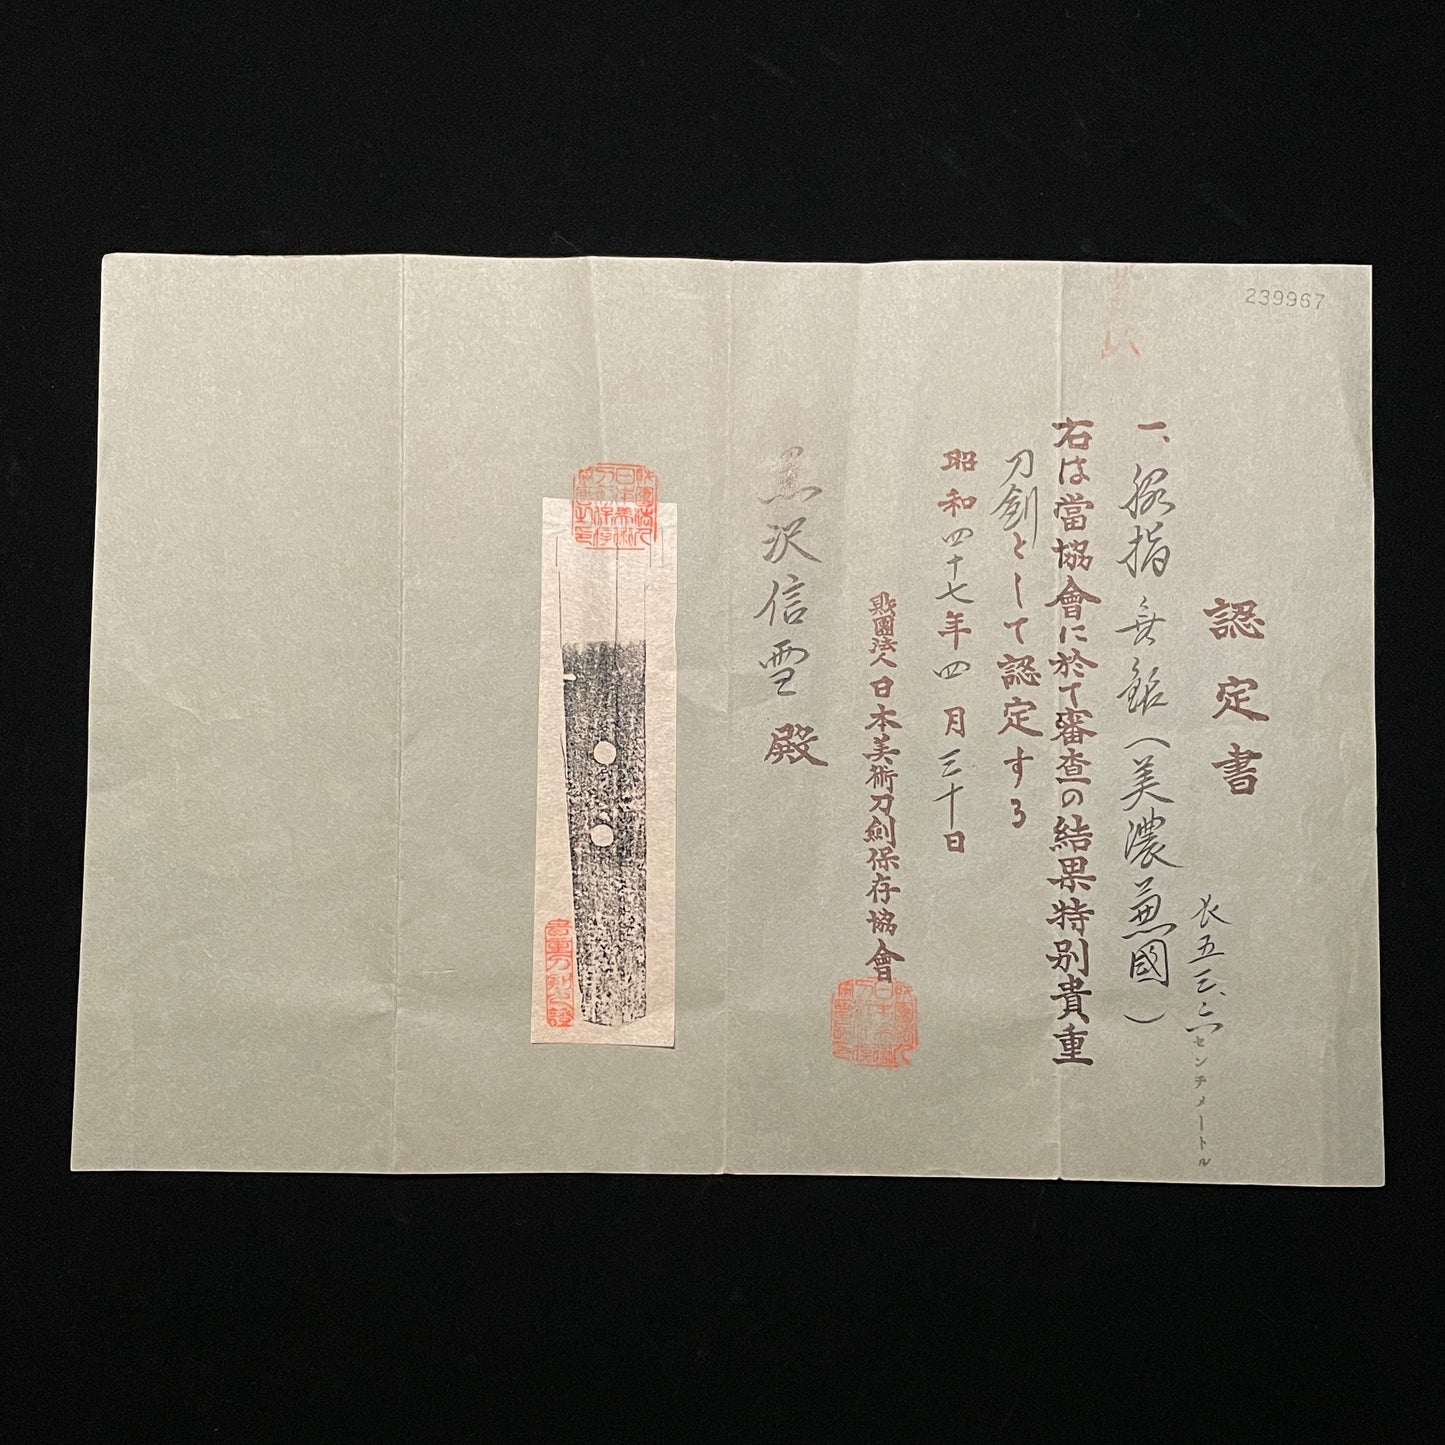 239967
認定書
一、脇指 無銘(美濃兼國)
長五三、六センチメートル
右は當協會に於て審査の結果特別貴重
刀劍として認定する
昭和四十七年四月三十日
財團法人日本美術刀劍保存協會
黒沢信雪殿